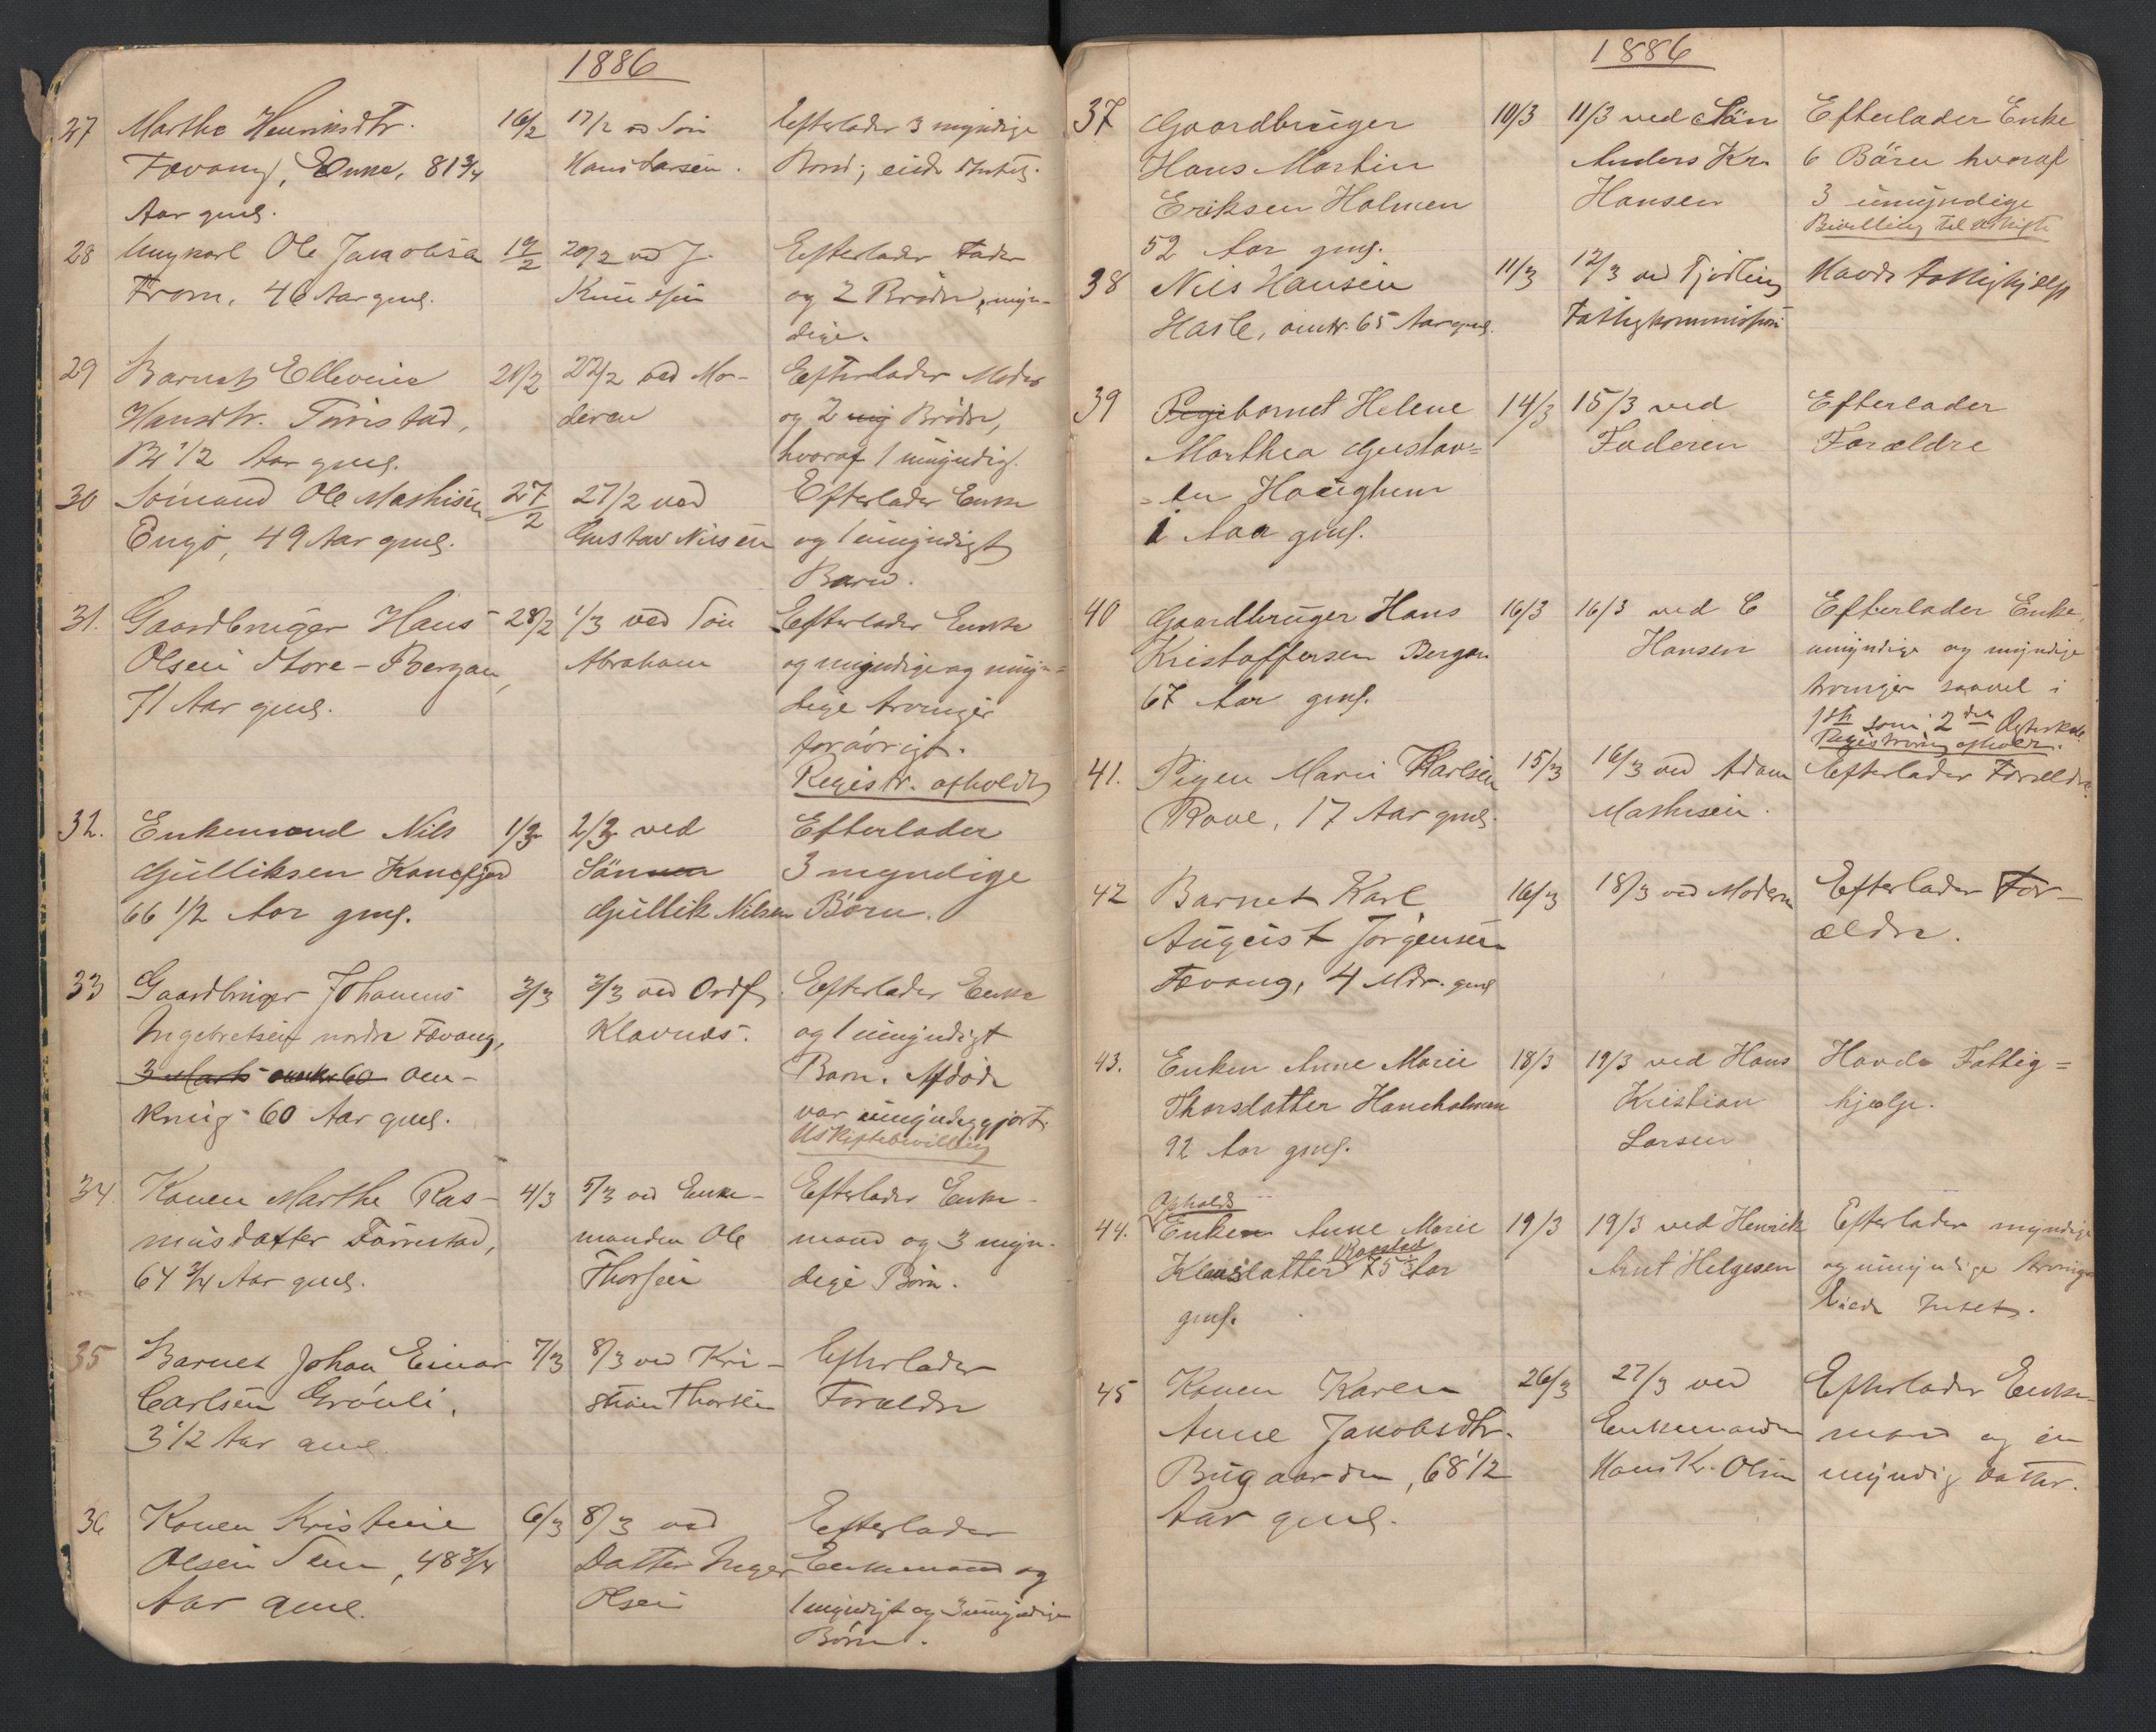 1886
27 Marthe Henriksdtr. 16/2 17/2 ved Søn Efterlader 3 myndige
Fævang, Enke, 81 3/4 Hans Larsen. Børn; eiede Intet.
Aar gml.
28 Ungkarl Ole Jakobsen 19/2 20/2 ved J. Efterlader Fader
From, 46 Aar gml. Knudsen og 2 Brødre, myn-
dige.
29 Barnet Ellevine 21/2 22/2 ved Mo- Efterlader Moder
Hansdtr. Torrestad, deren og 2 Brødre,
1/2 Aar gml. hvoraf 1 umyndig.
30 Sømand Ole Mathisen 27/2 27/2 ved Efterlader Enke
Engø, 49 Aar gml. Gustav Nilsen og 1 umyndigt
Barn.
31. Gaardbruger Hans 28/2 1/3 ved Søn Efterlader Enke
Olsen Store-Bergan, Abraham og myndige og umyn-
71 Aar gml. dige Arvinger
forøvrigt.
Registr. afholdt
32. Enkemand Nils 1/3 2/3 ved Efterlader
Gulliksen Kanefjord Sønnen 3 myndige
66 1/2 Aar gml. Gullik Nilsen Børn.
33 Gaardbruger Johannes 3/3 3/3 ved Ordf. Efterlader Enke
Ingebretsen nordre Fævang, Klavnæs. og 1 umyndigt
3 Marts omkr 60 om- Barn. Afdøde
kring 60 Aar gml. var umyndiggjort.
Uskiftebevilling
34. Konen Marthe Ras- 4/3 5/3 ved Enke- Efterlader Enke-
musdatter Torrestad, manden Ole mand og 3 myn-
64 3/4 Aar gml. Thorsen dige Børn.
35 Barnet Johan Einar 7/3 8/3 ved Kri- Efterlader
Carlsen Grønli, stian Thorsen Forældre
3 1/2 Aar gml.
36 Konen Kristine 6/3 8/3 ved Efterlader
Olsen Sem, 48 3/4 Datter Inger Enkemand og
Aar gml. Olsen 1 myndigt og 3 umyndige
Børn.
1886
37 Gaardbruger 10/3 11/3 ved Søn Efterlader Enke
Hans Martin Anders Kr. 6 Børn hvoraf
Eriksen Holmen Hansen 3 umyndige
52 Aar gml. Bevilling til Uskifte
38 Nils Hansen 11/3 12/3 ved Tjølling Havde Fattighjelp
Hasle, omtr. 65 Aar gml. Fattigkommission
39 Pigebarnet Helene 14/3 15/3 ved Efterlader
Marthea Gustav= Faderen Forældre
=sen Haughem
1 Aar gml.
40 Gaardbruger Hans 16/3 16/3 ved C Efterlader Enke,
Kristoffersen Bergan Hansen umyndige og myndige
67 Aar gml. Arvinger saavel i
1ste som 2den Ægteskab.
Registrering afholdt.
41. Pigen Marie Karlsen 15/3 16/3 ved Adam Efterlader Forældre.
Rove, 17 Aar gml. Mathisen.
42 Barnet Karl 16/3 18/3 ved Moderen Efterlader For-
August Jørgensen ældre.
Fævang, 4 Mdr. gml
43. Enken Anne Marie 18/3 19/3 ved Hans Havde Fattig=
Thorsdatter Haneholmen Kristian hjælp.
92 Aar gml. Larsen
Opholds
44. Enken Anne Marie 19/3 19/3 ved Henrik Efterlader myndige
datter 75 Aar Arnt Helgesen og umyndige Arvinger
gml. Eiede Intet.
45 Konen Karen 26/3 27/3 ved Efterlader Enke-
Anne Jakobsdtr. Enkemanden mand og en
Bugaarden, 68 1/2 Hans Kr. Olsen myndig Datter.
Aar gml.